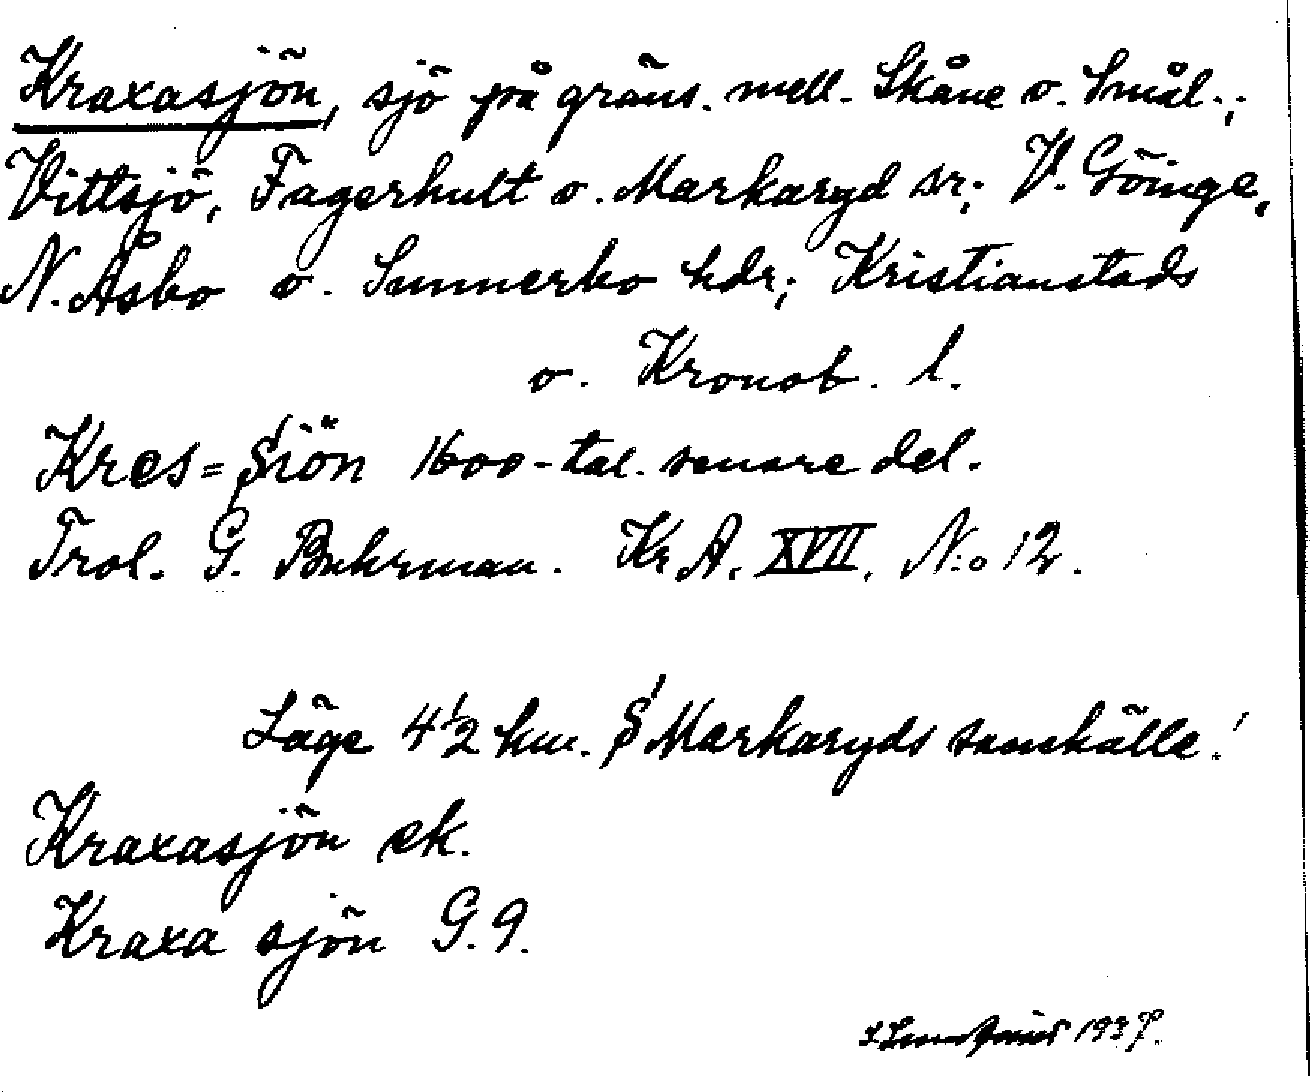 Kraxasjön, sjö på gräns. mell. Skåne o. Smål.;
Vittsjö, Fagerhult o. Markaryd sr; V. Göinge,
N. Åsbo o. Sunnerbo hdr; Kristianstads
o. Kronob. l.
Kres=Siön 1600-tal. senare del.
Trol. G. Buhrman. Kr. A. XVII, N:o 12.
Läge 4½ km. S Markaryds samhälle!
Kraxasjön ek.
Kraxa sjön G. 9.
1937.